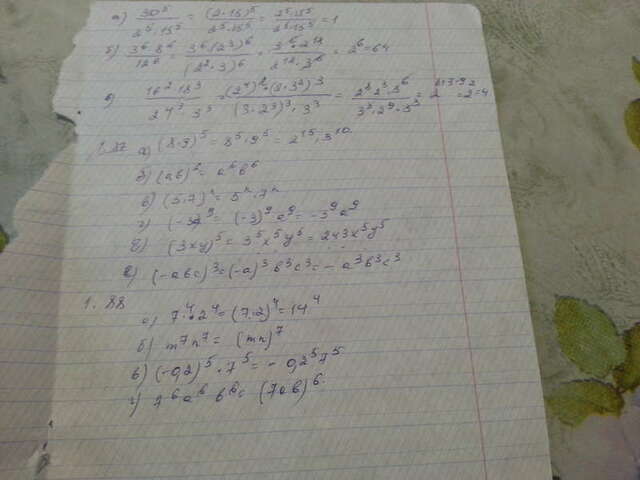 а) 30⁵/(2⁵·15⁵) = (2·15)⁵/(2⁵·15⁵) = (2⁵·15⁵)/(2⁵·15⁵) = 1
б) (3⁶·8⁶)/12⁶ = (3⁶·(2³)⁶)/(2²·3)⁶ = (3⁶·2¹⁸)/(2¹²·3⁶) = 2⁶ = 64
в) (16²·18³)/(24³·3³) = ((2⁴)²·(2·3²)³)/((3·2³)³·3³) = (2⁸·2³·3⁶)/(3³·2⁹·3³) = = 2² = 4
1.87 а) (8·9)⁵ = 8⁵·9⁵ = 2¹⁵·3¹⁰
б) (ab)⁶ = a⁶b⁶
в) (5·7)ⁿ = 5ⁿ·7ⁿ
г) (-3a)⁹ = (-3)⁹a⁹ = -3⁹a⁹
д) (3xy)⁵ = 3⁵x⁵y⁵ = 243x⁵y⁵
е) (-abc)³ = (-a)³b³c³ = -a³b³c³
1.88
а) 7⁴·2⁴ = (7·2)⁴ = 14⁴
б) m⁷n⁷ = (mn)⁷
в) (-0,2)⁵·7⁵ = -0,2⁵7⁵
г) 7⁶a⁶b⁶ = (7ab)⁶